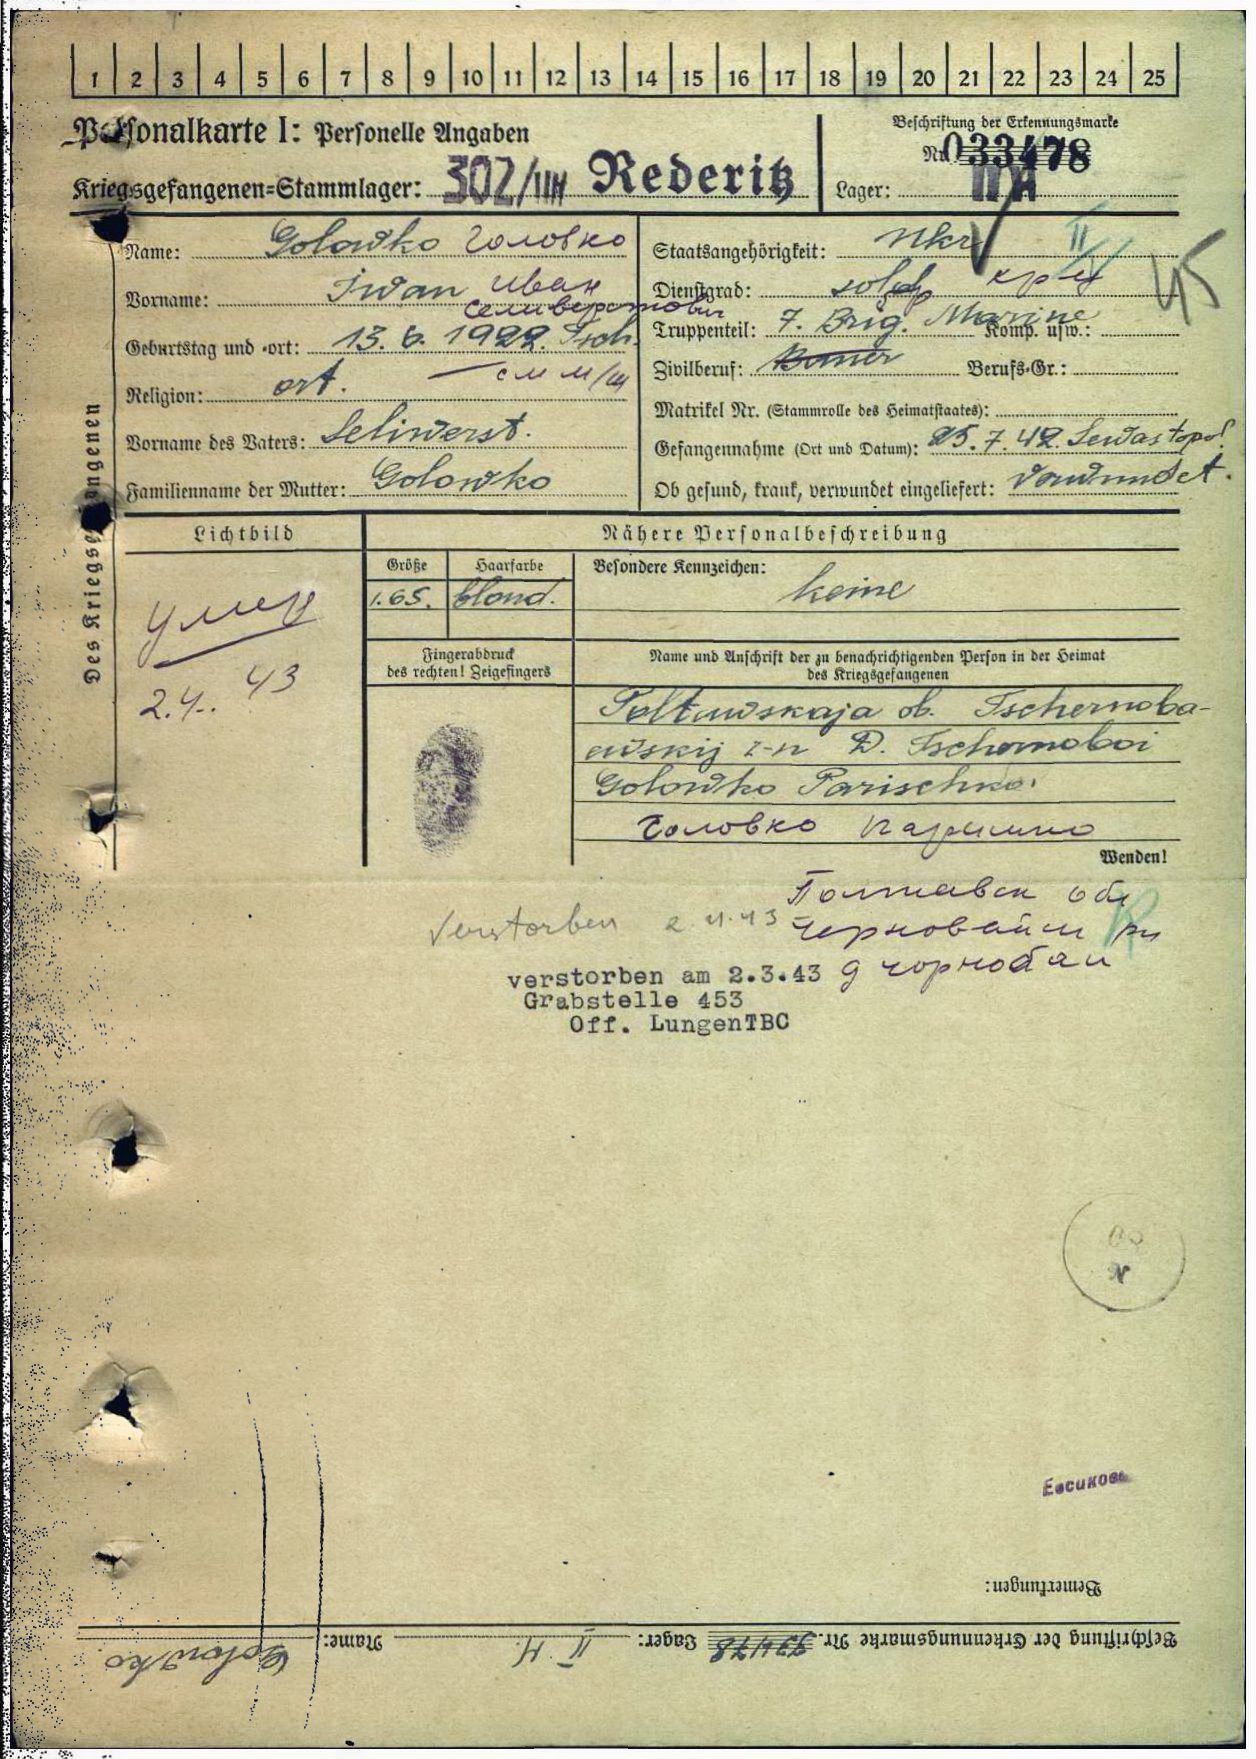 1 2 3 4 5 6 7 8 9 10 11 12 13 14 15 16 17 18 19 20 21 22 23 24 25
Personalkarte I: Personelle Angaben
Beschriftung der Erkennungsmarke
Nr. 033478
Kriegsgefangenen-Stammlager: 302/IIH Rederitz
Lager: II H
Des Kriegsgefangenen
Name: Golowko Головко
Vorname: Iwan Иван
Селиверстович
Geburtstag und -ort: 13. 6. 1922. Tsch.
Religion: ort.
Vorname des Vaters: Seliwerst.
Familienname der Mutter: Golowko
Staatsangehörigkeit: Ukr
Dienstgrad: sold
Truppenteil: 7. Brig. Marine Komp. usw.:
Zivilberuf: Bauer Berufs-Gr.:
Matrikel Nr. (Stammrolle des Heimatstaates):
Gefangennahme (Ort und Datum): 25. 7. 42. Sewastopol
Ob gesund, krank, verwundet eingeliefert: verwundet.
45
Lichtbild
Nähere Personalbeschreibung
Größe Haarfarbe Besondere Kennzeichen:
1.65. blond. keine
умер
2.4. 43
Fingerabdruck
des rechten! Zeigefingers
Name und Anschrift der zu benachrichtigenden Person in der Heimat
des Kriegsgefangenen
Poltawskaja ob. Tschernoba-
ewskij r-n D. Tschornoboi
Golowko Parischko.
Головко Паришко
Wenden!
Полтавск обл
Verstorben 2.4.43
д чорнобаи
verstorben am 2.3.43
Grabstelle 453
Off. LungenTBC
Евсикова
Bemerkungen:
Beschriftung der Erkennungsmarke Nr. 33478 Lager: II H. Name: Golowko